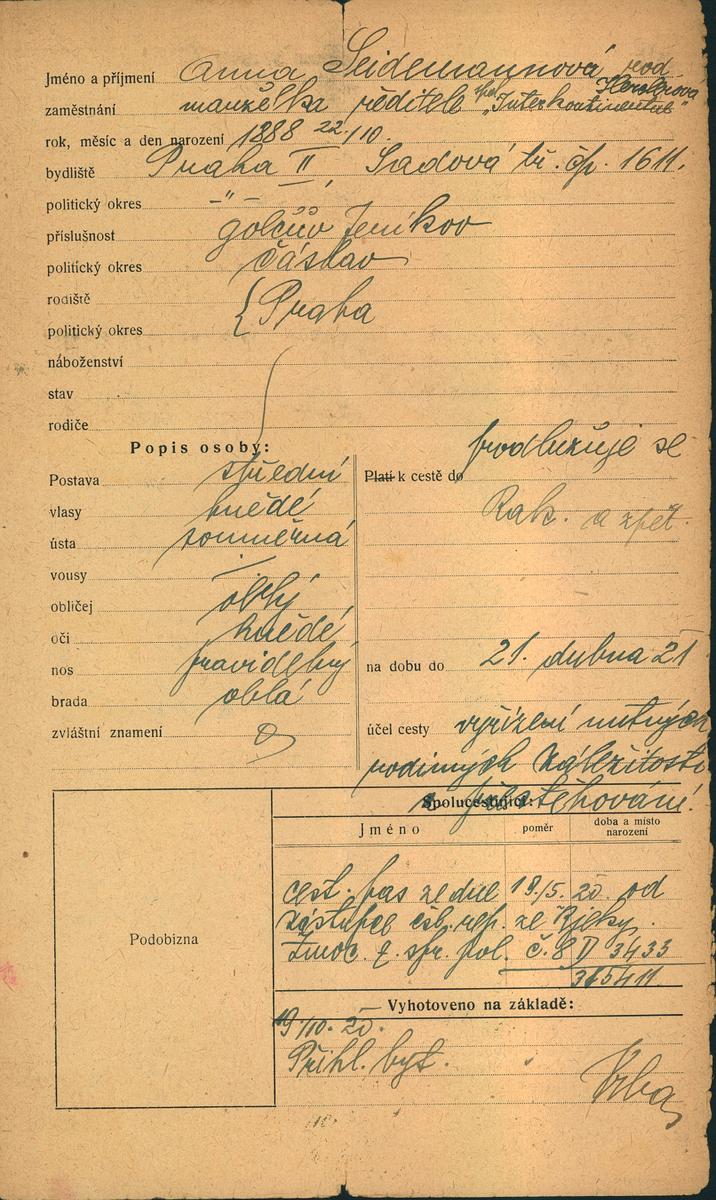 Jméno a příjmení Anna Seidemannová rod.
zaměstnání manželka ředitele spol. „Interkontinentale"
rok, měsíc a den narození 1888 22./10.
bydliště Praha II, Sadová tř. čp. 1611.
politický okres –"–
příslušnost Golčův Jeníkov
politický okres Čáslav
rodiště { Praha
politický okres
náboženství
stav
rodiče
Popis osoby:
Postava střední
vlasy hnědé
ústa souměrná
vousy –
obličej oblý
oči hnědé
nos pravidelný
brada oblá
zvláštní znamení 0
prodlužuje se
Platí k cestě do
Rak. a zpět.
na dobu do 21. dubna 21
účel cesty vyřízení nutných
rodinných záležitostí
a přestěhování.
Spolucestující:
Jméno poměr doba a místo narození
cest. pas ze dne 19./5. 20. od
zástupce čsl. rep. ze Rjeky.
zmoc. z. spr. pol. č. 8 D 3433
365411
Vyhotoveno na základě:
19/10. 20.
Přihl. byt.
Vrba
Podobizna